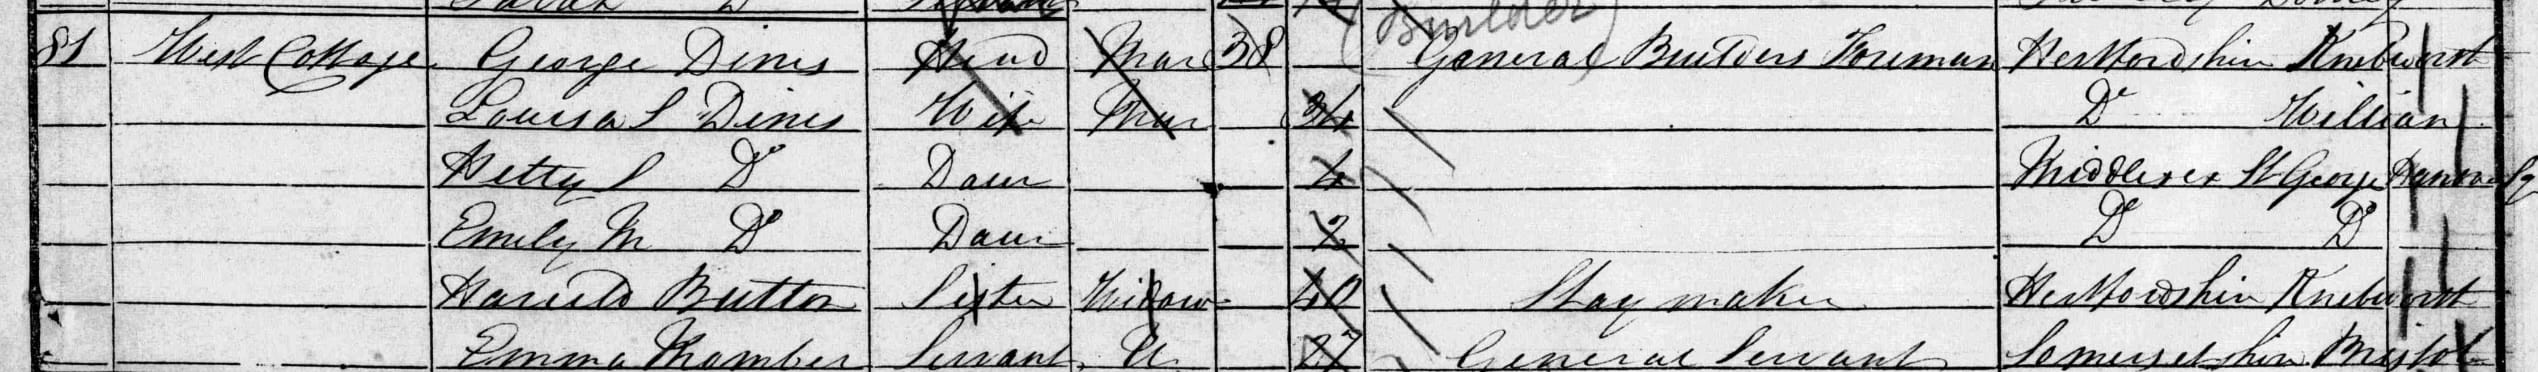 Sarah Do Servant
(Builder)
81 West Cottage George Dines Head Mar 38 General Builders Foreman Hertfordshire Knebworth
Louisa S Dines Wife Mar 34 Do Willian
Hetty S Do Daur 4 Middlesex St George Hanover Sq
Emily M Do Daur 2 Do Do
Harriett Button Sister Widow 40 Stay maker Hertfordshire Knebworth
Emma Servant U 27 General Servant Somersetshire Bristol